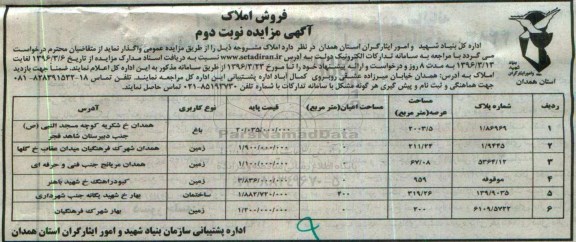 فروش املاک
آگهی مزایده نوبت دوم
اداره کل بنیاد شهید و امور ایثارگران استان همدان در نظر دارد املاک مشروحه ذیل را از طریق مزایده عمومی واگذار نماید از متقاضیان محترم درخواست
می گردد با مراجعه به سامانه تدارکات الکترونیک دولت به آدرس www.setadiran.ir نسبت به دریافت اسناد مدارک مزایده از تاریخ ۱۳۹۶/۳/۶ لغایت
۱۳۹۶/۳/۱۳ به مدت ۸ روز و درخواست و ارائه پیشنهاد خود را تا مورخ ۱۳۹۶/۳/۲۳ از طریق سامانه مذکور به این اداره کل اعلام نمایند. ضمناً جهت بازدید
املاک به آدرس: همدان خیابان میرزاده عشقی روبروی کمال آباد اداره پشتیبانی این اداره کل مراجعه نمایند. تلفن تماس ۱۸-۸۲۸۳۹۱۵۳۲-۰۸۱
جهت هماهنگی و ثبت نام و پیش گیری هر گونه مشکل با سامانه تدارکات با شماره تلفن ۸۵۱۹۳۷۳۰-۰۲۱ تماس حاصل نمایند.
بنیاد شهید و امور ایثارگران
استان همدان
ردیف شماره پلاک مساحت عرصه(متر مربع) مساحت اعیان(متر مربع) قیمت پایه نوع کاربری آدرس
۱ ۱/۸۶۹۶۹ ۲۰۰۳/۵ ۰ ۲۰/۰۳۵/۰۰۰/۰۰۰ باغ همدان خ شکریه کوچه مسجد النبی (ص) جنب دبیرستان شاهد فجر
۲ ۱/۹۴۳۵ ۲۱۱/۲۴ ۰ ۱/۹۰۰/۸۰۰/۰۰۰ زمین همدان شهرک فرهنگیان میدان عقاب خ گلها
۳ ۵۳۶۴/۱۲ ۶۷/۰۸ ۰ ۱/۱۰۰/۰۰۰/۰۰۰ زمین همدان مریانج جنب فنی و حرفه ای
۴ موقوفه ۹۵۹ ۰ ۲/۸۳۶/۰۰۰/۰۰۰ زمین کبودراهنگ خ شهید باهنر
۵ ۱۳۹/۹۰۳۵ ۳۱۹/۲۶ ۴۰۰ ۱/۸۸۲/۷۲۰/۰۰۰ ساختمان بهار خ شهید یگانه جنب شهرداری
۶ ۶۱۰۹/۵۷۲۲ ۲۰۰ ۰ ۱/۲۰۰/۰۰۰/۰۰۰ زمین بهار شهرک فرهنگیان
اداره پشتیبانی سازمان بنیاد شهید و امور ایثارگران استان همدان